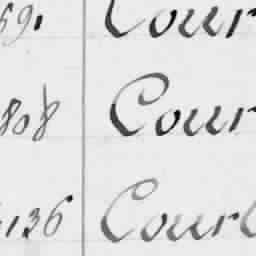 59. Cour
808 Cour
136 Court